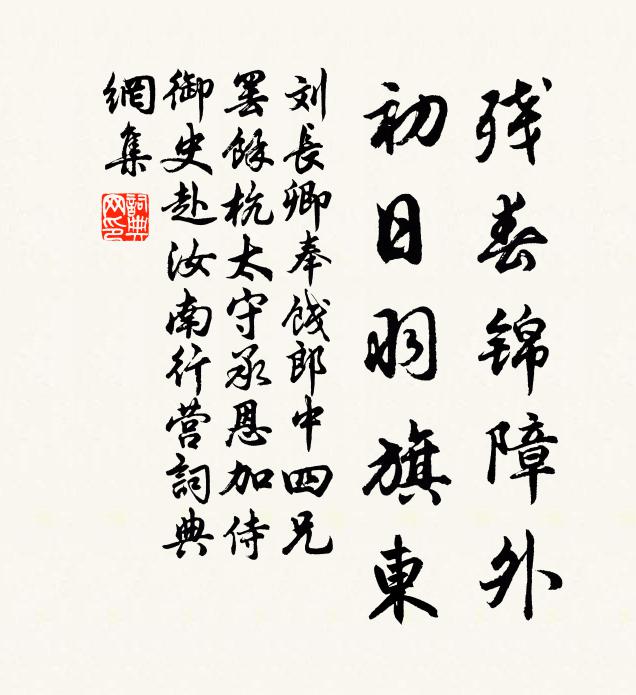 残春锦障外
初日羽旗東
刘長卿奉餞郎中四兄
罢餘杭太守承恩加侍
御史赴汝南行营詞典
網集
詞典
网印